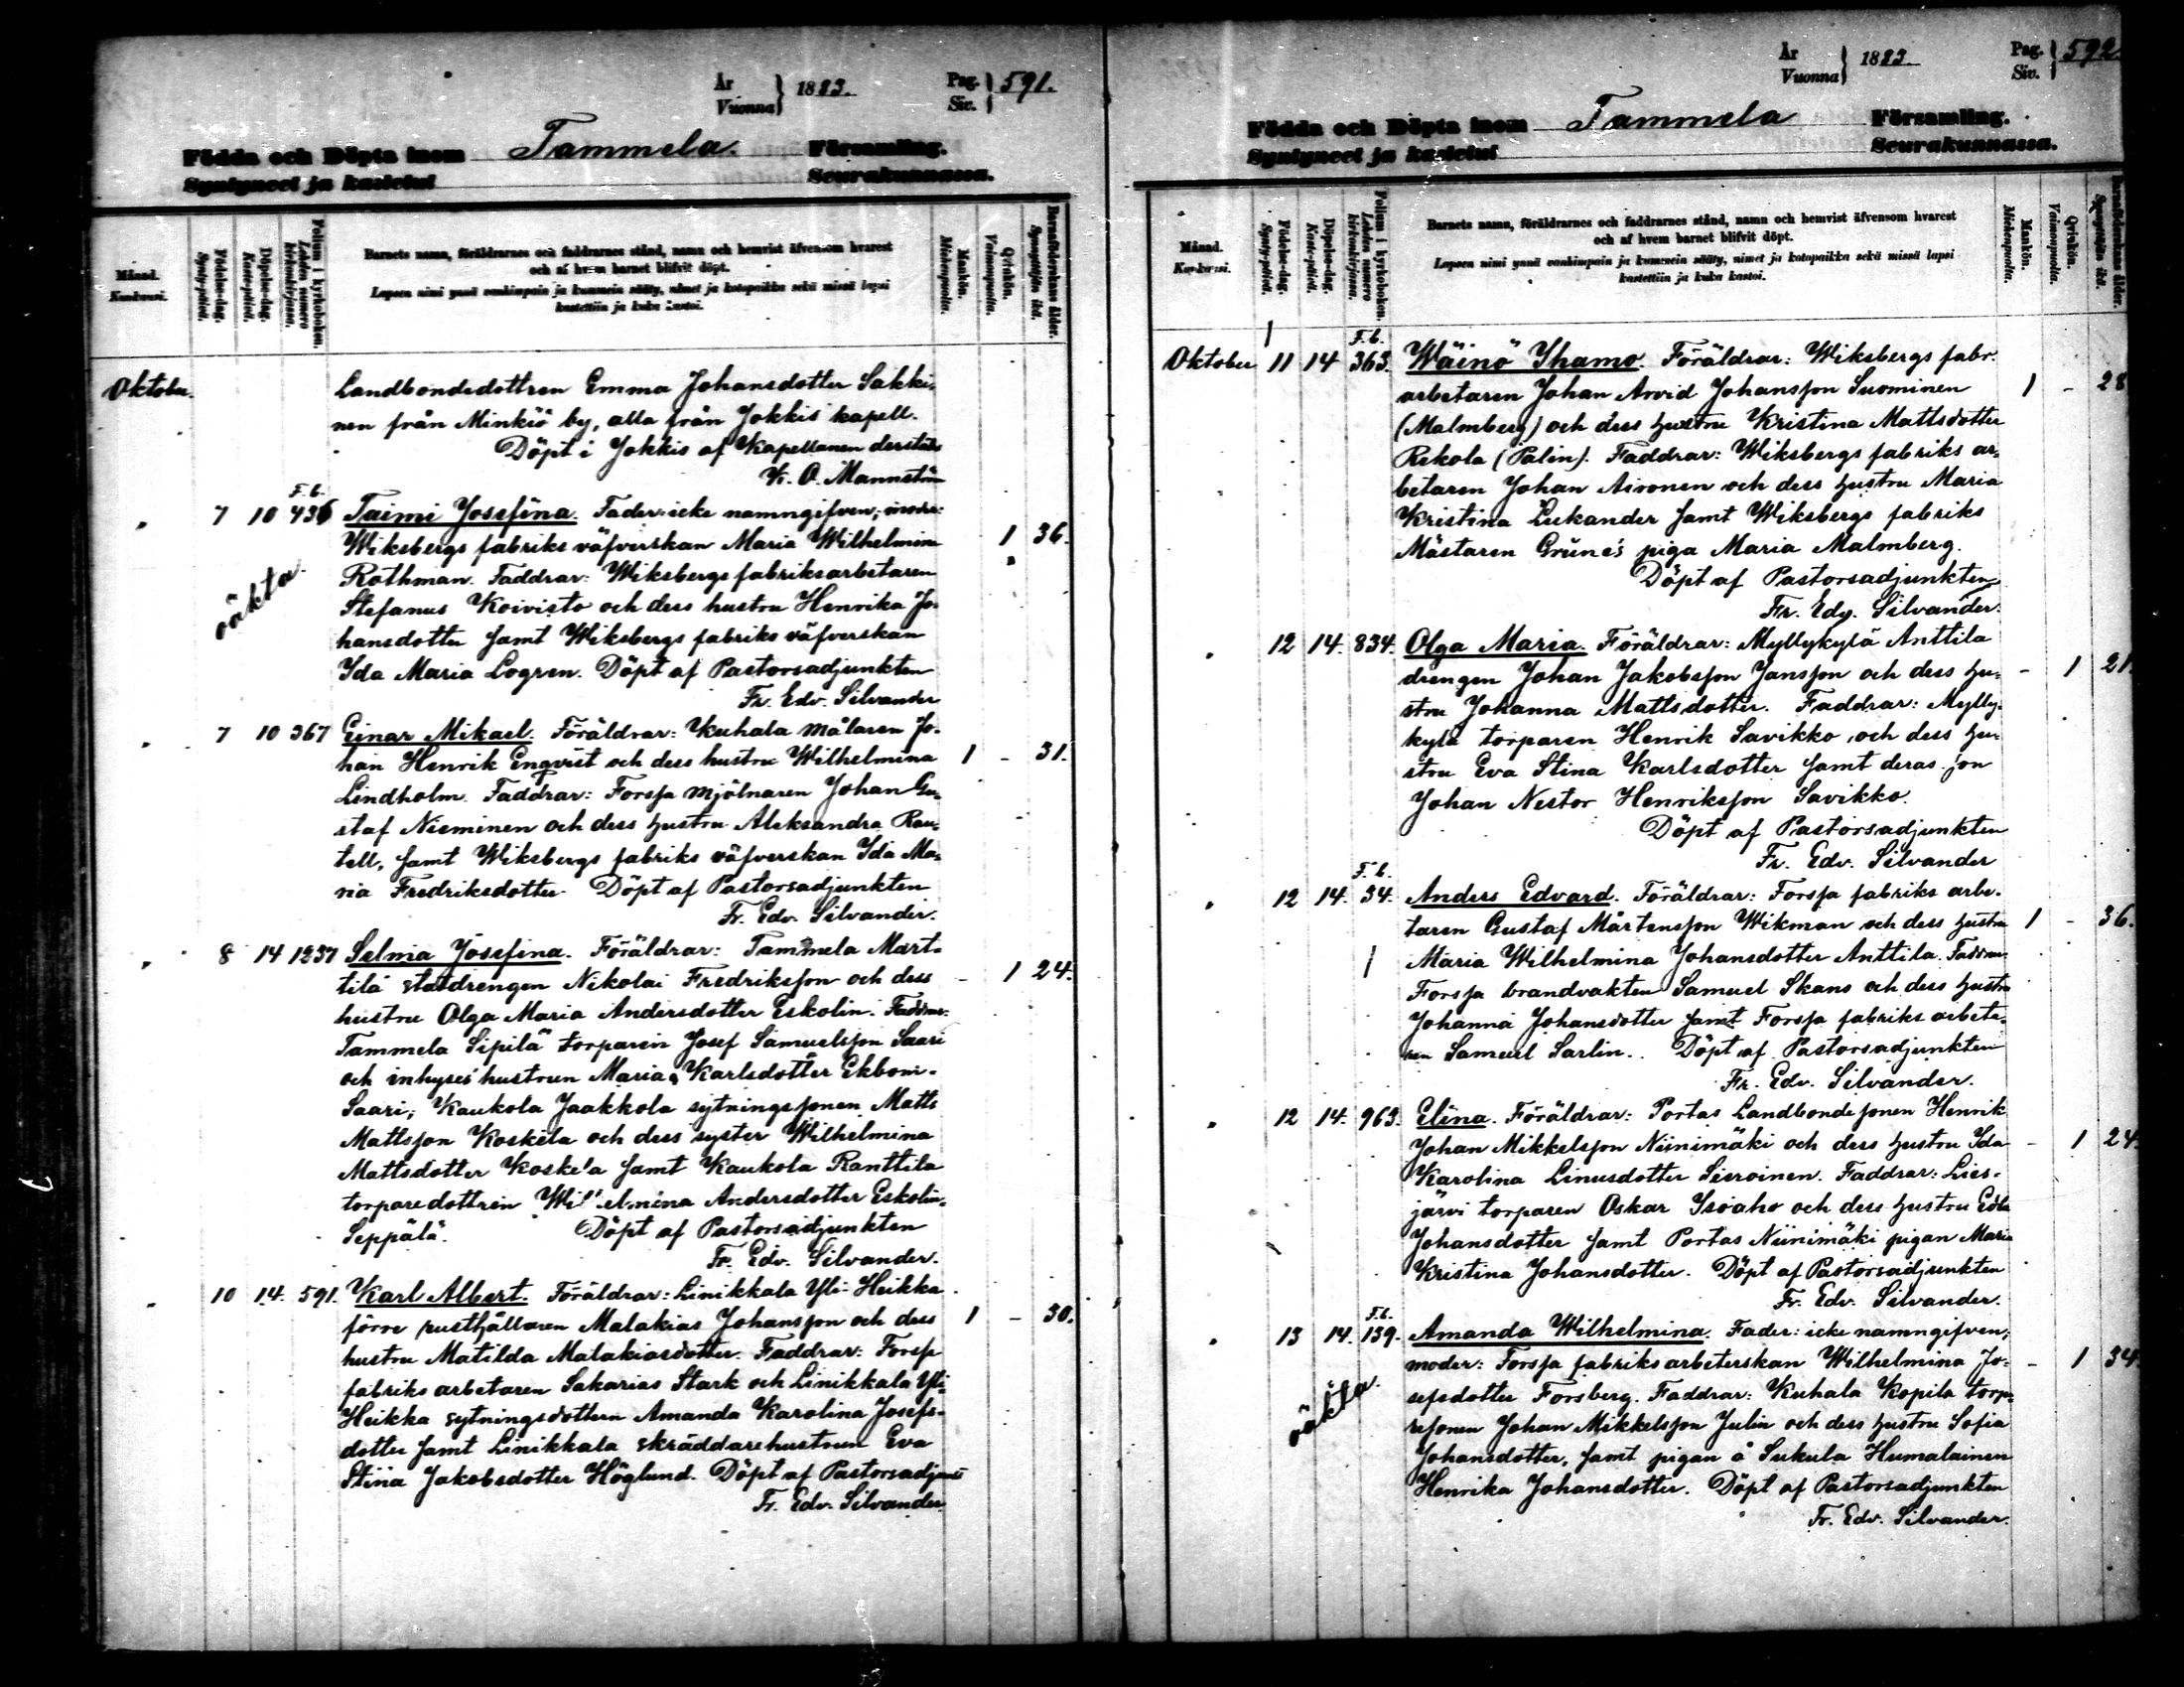 År
Vuonna } 1883. Pag. Siv. } 591.
Födda och Döpta inom Tammela. Församling.
Syntyneet ja kastetut Seurakunnassa.
Månad. Kuukausi.
Födelse-dag. Synty-päivä.
Döpelse-dag. Kaste-päivä.
Folium i kyrkoboken. Lehden numero kirkonkirjassa.
Barnets namn, föräldrarnes och faddrarnes stånd, namn och hemvist äfvensom hvarest
och af hvem barnet blifvit döpt.
Lapsen nimi ynnä vanhimpain ja kummein sääty, nimet ja kotopaikka sekä missä lapsi
kastettiin ja kuka kastoi.
Mankön. Miehenpuolta.
Qvinkön. Vaimonpuolta.
Barnaföderskans ålder. Synnyttäjän ikä.
Oktober. Landbondedottren Emma Johansdotter Sakki-
nen från Minkiö by, alla från Jokkis kapell.
Döpt i Jokkis af Kapellanen derstädes
K. O. Mannström
F.b.
" 7 10 436 Taimi Josefina. Fader: icke namngifven; moder:
Wiksbergs fabriks väfverskan Maria Wilhelmina 1 36.
oäkta.
Rothman. Faddrar: Wiksbergs fabriksarbetaren
Stefanus Koivisto och dess hustru Henrika Jo-
hansdotter samt Wiksbergs fabriks väfverskan
Ida Maria Logren. Döpt af Pastorsadjunkten
Fr. Edv. Silvander
" 7 10 367 Einar Mikael. Föräldrar: Kuhala målaren Jo-
han Henrik Enqvist och dess hustru Wilhelmina 1 - 31.
Lindholm. Faddrar: Forssa mjölnaren Johan Gu-
staf Nieminen och dess hustru Aleksandra Rau-
tell, samt Wiksbergs fabriks väfverskan Ida Ma-
ria Fredriksdotter. Döpt af Pastorsadjunkten
Fr. Edv. Silvander.
" 8 14 1237 Selma Josefina. Föräldrar: Tammela Mart-
tila statdrengen Nikolai Fredriksson och dess - 1 24.
hustru Olga Maria Andersdotter Eskolin. Faddrar:
Tammela Sipilä torparen Josef Samuelsson Saari
och inhyses hustrun Maria Karlsdotter Ekbom-
Saari; Kaukola Jaakkola sytningssonen Matts
Mattsson Koskela och dess syster Wilhelmina
Mattsdotter Koskela samt Kaukola Ranttila
torparedottren Wilhelmina Andersdotter Eskolin-
Seppälä. Döpt af Pastorsadjunkten
Fr. Edv. Silvander.
" 10 14. 591. Karl Albert. Föräldrar: Linikkala Yli-Heikka
förre rusthållaren Malakias Johansson och dess 1 - 30.
hustru Matilda Malakiasdotter. Faddrar: Forssa
fabriks arbetaren Sakarias Stark och Linikkala Yli-
Heikka sytningsdottern Amanda Karolina Josefs-
dotter samt Linikkala skräddarehustrun Eva
Stina Jakobsdotter Höglund. Döpt af Pastorsadjunkt
Fr. Edv. Silvander.
År
Vuonna } 1883. Pag. Siv. } 592.
Födda och Döpta inom Tammela Församling.
Syntyneet ja kastetut Seurakunnassa.
Månad. Kuukausi.
Födelse-dag. Synty-päivä.
Döpelse-dag. Kaste-päivä.
Folium i kyrkoboken. Lehden numero kirkonkirjassa.
Barnets namn, föräldrarnes och faddrarnes stånd, namn och hemvist äfvensom hvarest
och af hvem barnet blifvit döpt.
Lapsen nimi ynnä vanhimpain ja kummein sääty, nimet ja kotopaikka sekä missä lapsi
kastettiin ja kuka kastoi.
Mankön. Miehenpuolta.
Qvinkön. Vaimonpuolta.
Barnaföderskans ålder. Synnyttäjän ikä.
F.b.
Oktober 11 14 363. Wäinö Ihamo. Föräldrar: Wiksbergs fabr.
arbetaren Johan Arvid Johansson Suominen 1 - 28
(Malmberg) och dess hustru Kristina Mattsdotter
Rekola (Palin). Faddrar: Wiksbergs fabriks ar-
betaren Johan Aivonen och dess hustru Maria
Kristina Lukander samt Wiksbergs fabriks
Mästaren Grüne's piga Maria Malmberg.
Döpt af Pastorsadjunkten
Fr. Edv. Silvander.
" 12 14. 834. Olga Maria. Föräldrar: Myllykylä Anttila
drengen Johan Jakobsson Jansson och dess hu- - 1 21.
stru Johanna Mattsdotter. Faddrar: Mylly-
kylä torparen Henrik Savikko, och dess hu-
stru Eva Stina Karlsdotter samt deras son
Johan Nestor Henriksson Savikko.
Döpt af Pastorsadjunkten
Fr. Edv. Silvander
F.b.
" 12 14. 34. Anders Edvard. Föräldrar: Forssa fabriks arbe-
taren Gustaf Mårtensson Wikman och dess hustru 1 - 36.
Maria Wilhelmina Johansdotter Anttila. Faddrar:
Forssa brandvakten Samuel Skans och dess hustru
Johanna Johansdotter samt Forssa fabriks arbeta-
ren Samuel Sarlin. Döpt af Pastorsadjunkten
Fr. Edv. Silvander.
" 12 14. 963. Elina. Föräldrar: Portas Landbondesonen Henrik
Johan Mikkelsson Niinimäki och dess hustru Ida - 1 24.
Karolina Linusdotter Sieroinen. Faddrar: Lies-
järvi torparen Oskar Isoaho och dess hustru Edla
Johansdotter samt Portas Niinimäki pigan Maria
Kristina Johansdotter. Döpt af Pastorsadjunkten
Fr. Edv. Silvander.
F.b.
" 13 14. 139. Amanda Wilhelmina. Fader: icke namngifven;
moder: Forssa fabriksarbeterskan Wilhelmina Jo- - 1 34.
oäkta.
sefsdotter Forsberg. Faddrar: Kuhala Kopila torpa-
resonen Johan Mikkelsson Julin och dess hustru Sofia
Johansdotter, samt pigan å Sukula Humalainen
Henrika Johansdotter. Döpt af Pastorsadjunkten
Fr. Edv. Silvander.